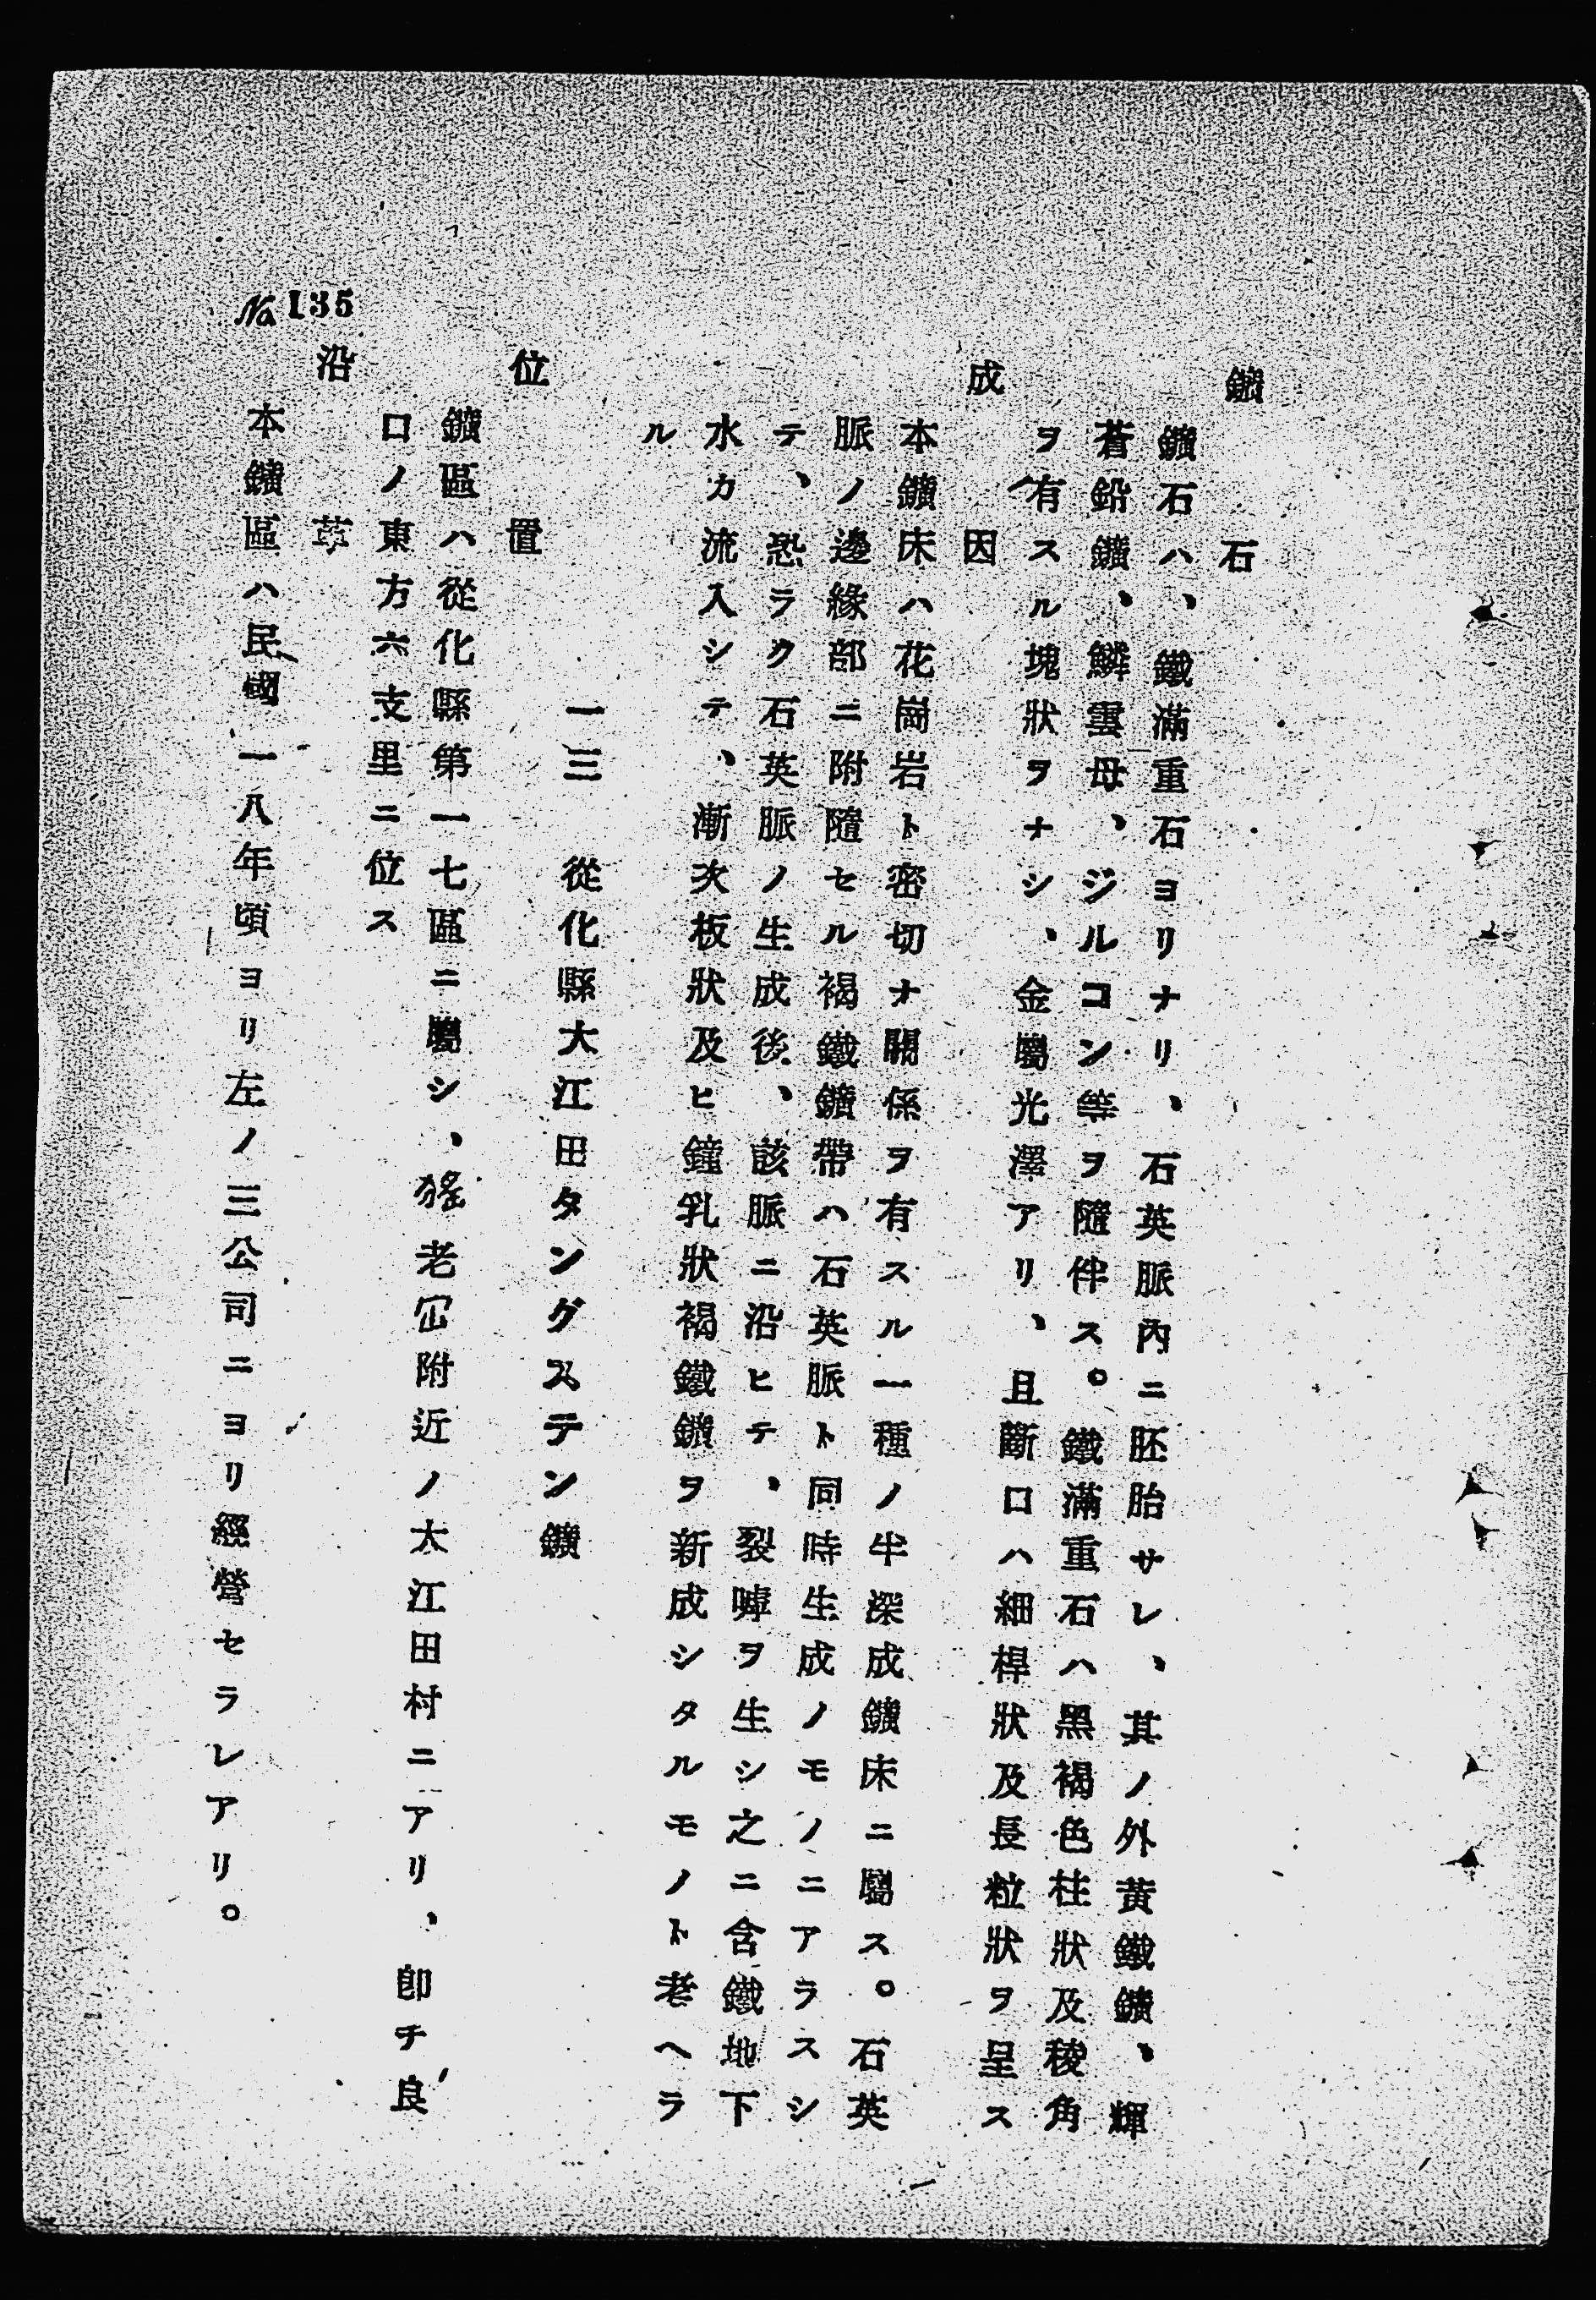 鑛石
鑛石ハ、鐵滿重石ヨリナリ、石英脈內ニ胚胎サレ、其ノ外黃鐵鑛、輝
蒼鉛鑛、鱗雲母、ジルコン等ヲ隨伴ス。鐵滿重石ハ黑褐色柱狀及稜角
ヲ有スル塊狀ヲナシ、金屬光澤アリ、且斷口ハ細桿狀及長粒狀ヲ呈ス
成因
本鑛床ハ花崗岩ト密切ナ關係ヲ有スル一種ノ半深成鑛床ニ屬ス。石英
脈ノ邊緣部ニ附隨セル褐鐵鑛帶ハ石英脈ト同時生成ノモノニアラスシ
テ、恐ラク石英脈ノ生成後、該脈ニ沿ヒテ、裂罅ヲ生シ之ニ含鐵地下
水カ流入シテ、漸次板狀及ヒ鐘乳狀褐鐵鑛ヲ新成シタルモノト老ヘラ
ル
一三 從化縣大江田タングステン鑛
位置
鑛區ハ從化縣第一七區ニ屬シ、猺老冚附近ノ太江田村ニアリ、卽チ良
口ノ東方六支里ニ位ス
沿革
本鑛區ハ民國一八年頃ヨリ左ノ三公司ニヨリ經營セラレアリ。
№135